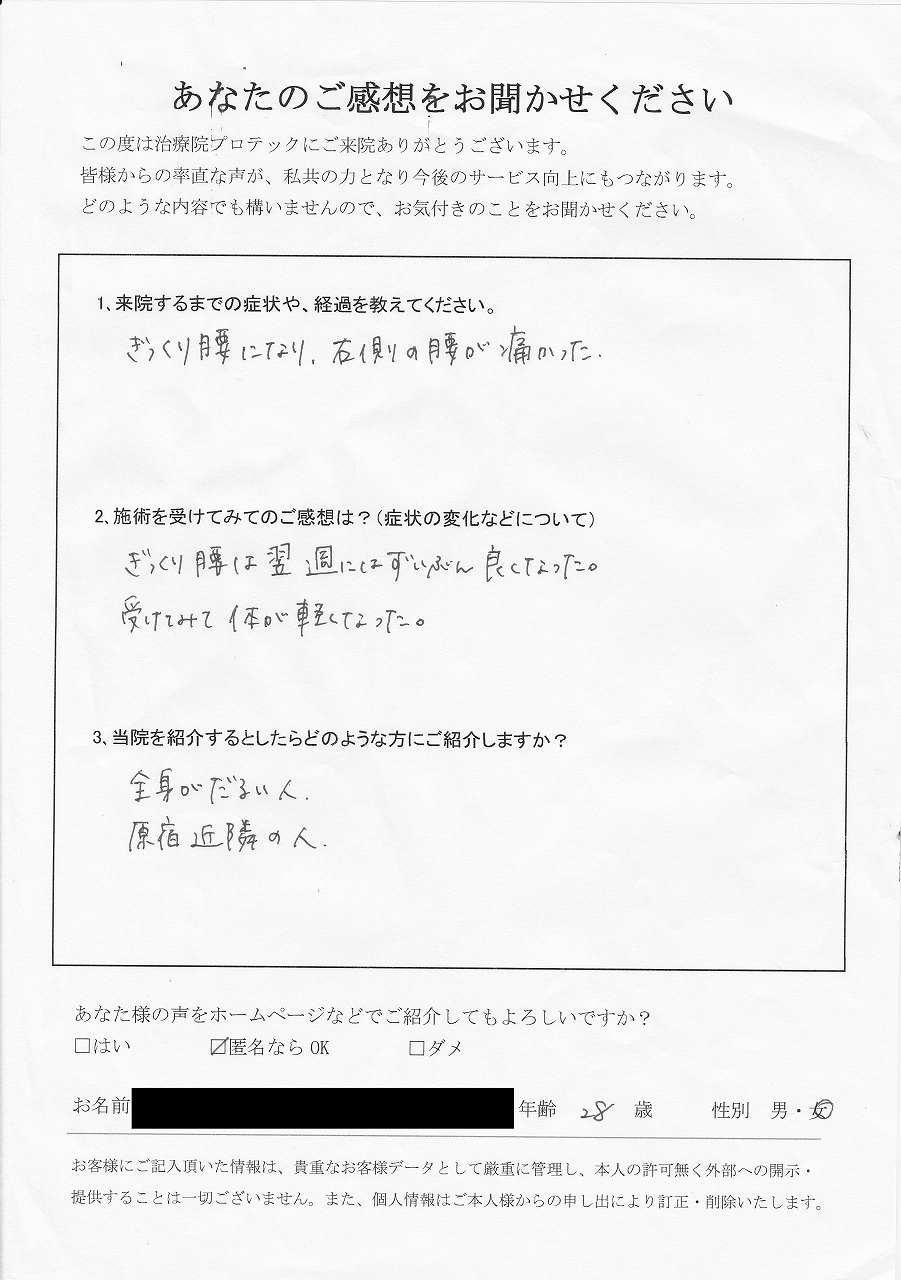 あなたのご感想をお聞かせください
この度は治療院プロテックにご来院ありがとうございます。
皆様からの率直な声が、私共の力となり今後のサービス向上にもつながります。
どのような内容でも構いませんので、お気付きのことをお聞かせください。
1、来院するまでの症状や、経過を教えてください。
ぎっくり腰になり、右側の腰が痛かった.
2、施術を受けてみてのご感想は？(症状の変化などについて)
ぎっくり腰は翌週にはずいぶん良くなった。
受けてみて体が軽くなった。
3、当院を紹介するとしたらどのような方にご紹介しますか？
全身がだるい人.
原宿近隣の人.
あなた様の声をホームページなどでご紹介してもよろしいですか？
□はい ☑匿名なら OK □ダメ
お名前 年齢 28 歳 性別 男・女
お客様にご記入頂いた情報は、貴重なお客様データとして厳重に管理し、本人の許可無く外部への開示・
提供することは一切ございません。また、個人情報はご本人様からの申し出により訂正・削除いたします。